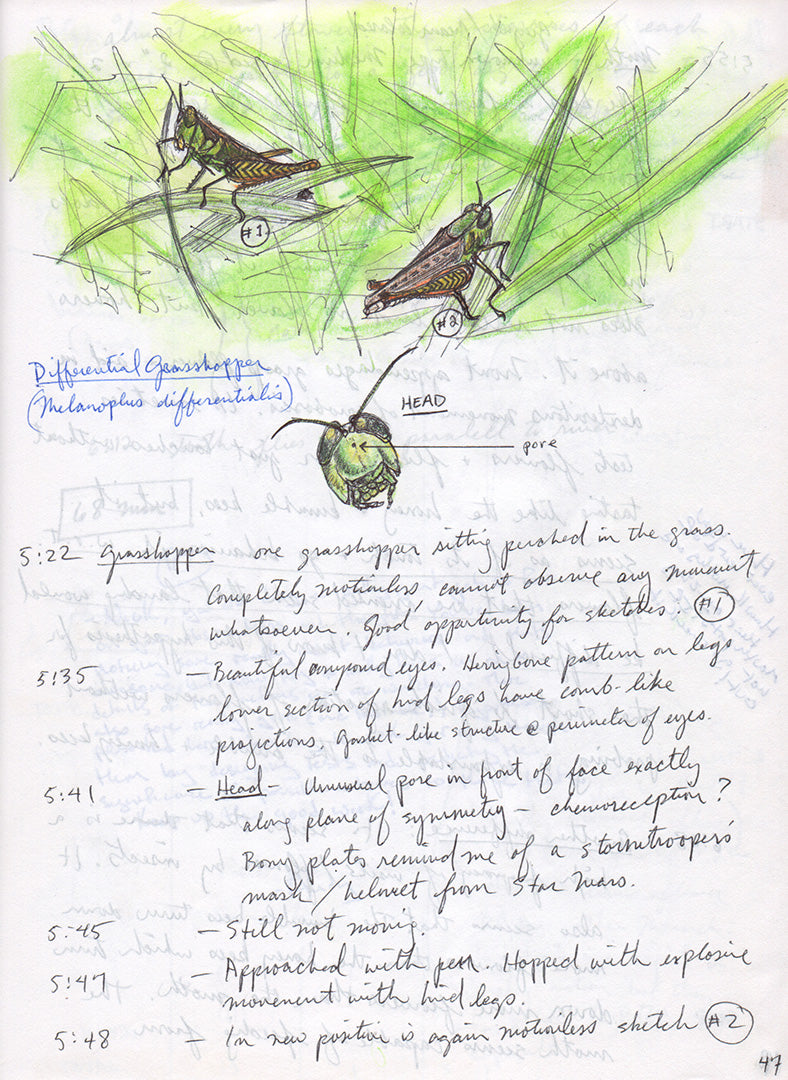 #1
#2
Differential Grasshopper
(Melanoplus differentialis)
HEAD
pore
5:22 Grasshopper one grasshopper sitting perched in the grass.
Completely motionless, cannot observe any movement
whatsoever. Good opportunity for sketches. #1
5:35 – Beautiful compound eyes. Herringbone pattern on legs
lower section of hind legs have comb-like
projections. Gasket-like structure @ perimeter of eyes.
5:41 – Head – Unusual pore in front of face exactly
along plane of symmetry – chemoreception?
Bony plates remind me of a stormtroopers'
mask/helmet from Star Wars.
5:45 – Still not moving.
5:47 – Approached with pen. Hopped with explosive
movement with hind legs.
5:48 – In new position is again motionless sketch #2
47